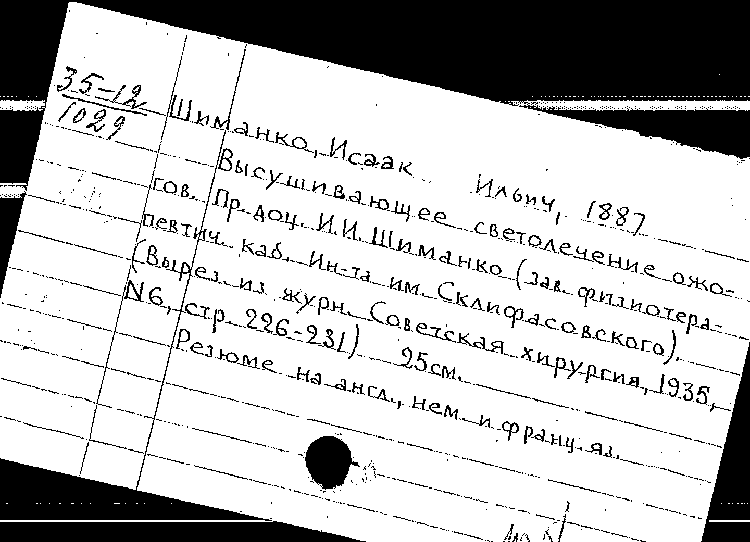 35-12
1029
Шиманко, Исаак Ильич, 1887
Высушивающее светолечение ожо-
гов. Пр.-доц. И.И. Шиманко (зав. физиотера-
певтич. каб. Ин-та им. Склифасовского).
(Вырез. из журн. Советская хирургия, 1935,
N6, стр. 226-231) 25см.
Резюме на англ., нем. и франц. яз.